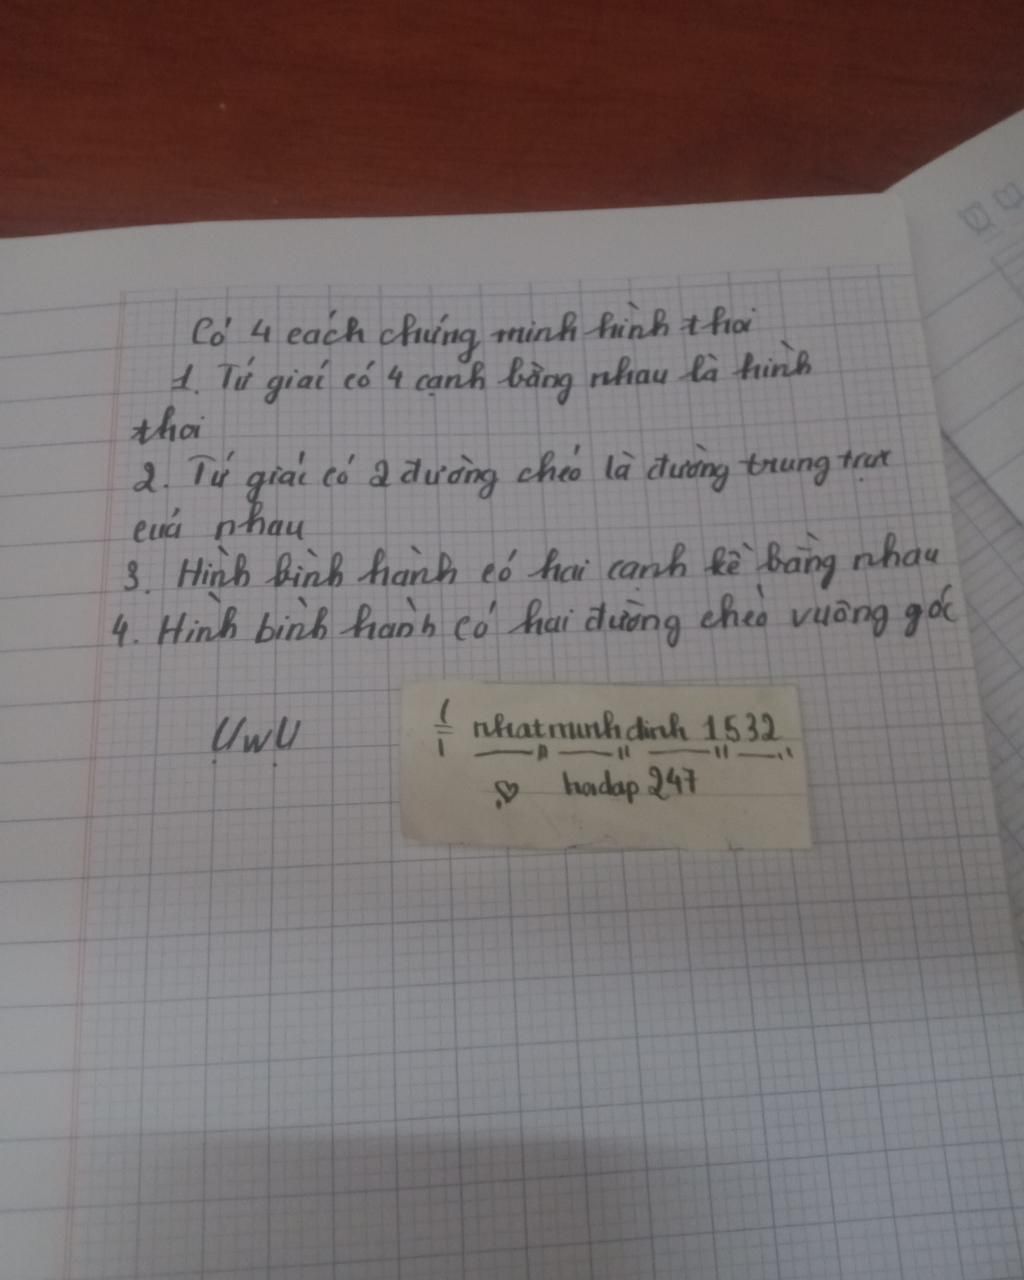 Có 4 cách chứng minh hình thoi
1. Tứ giác có 4 cạnh bằng nhau là hình
thoi
2. Tứ giác có 2 đường chéo là đường trung trực
của nhau
3. Hình bình hành có hai cạnh kề bằng nhau
4. Hình bình hành có hai đường chéo vuông góc
UwU
nhatminhdinh 1532
hoidap 247